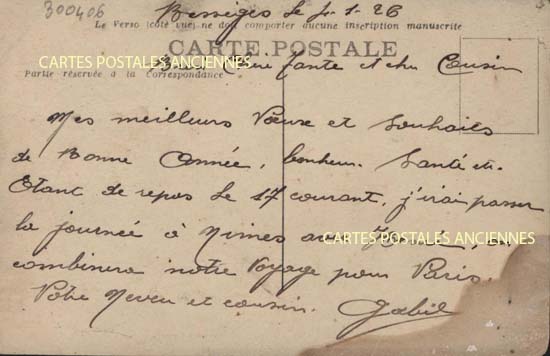 300406
Bessèges le 1-1-26
Le Verso (côté vue) ne doit comporter aucune inscription manuscrite
CARTE POSTALE
CARTES POSTALES ANCIENNES
Chère tante et cher Cousin
Partie réservée à la correspondance
Mes meilleurs Vœux et Souhaits
de Bonne Année, bonheur. Santé etc.
Etant de repos le 17 courant, j'irai passer
la journée à Nimes
CARTES POSTALES ANCIENNES
combinera notre Voyage pour Paris.
Votre Neveu et cousin. Gabriel